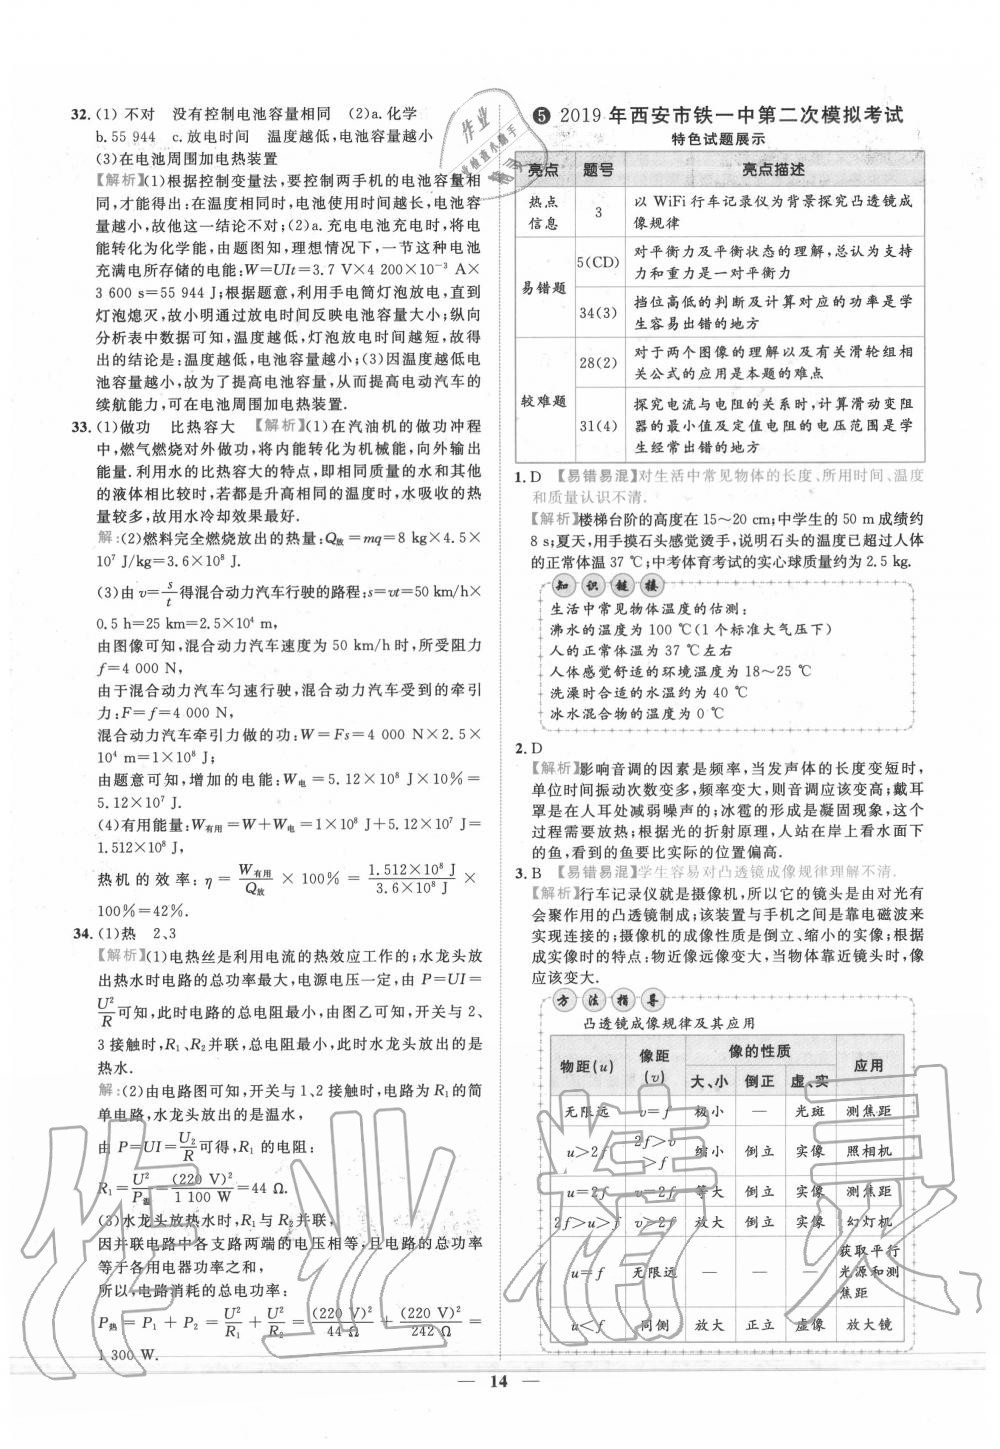 32. (1) 不对　没有控制电池容量相同　(2)a. 化学
b. 55 944　c. 放电时间　温度越低,电池容量越小
(3)在电池周围加电热装置
【解析】(1)根据控制变量法,要控制两手机的电池容量相
同,才能得出:在温度相同时,电池使用时间越长,电池容
量越小,故他这一结论不对;(2)a. 充电电池充电时,将电
能转化为化学能,由题图知,理想情况下,一节这种电池
充满电所存储的电能:W=UIt=3.7 V×4 200×10⁻³ A×
3 600 s=55 944 J;根据题意,利用手电筒灯泡放电,直到
灯泡熄灭,故小明通过放电时间反映电池容量大小;纵向
分析表中数据可知,温度越低,灯泡放电时间越短,故得
出的结论是:温度越低,电池容量越小;(3)因温度越低电
池容量越小,故为了提高电池容量,从而提高电动汽车的
续航能力,可在电池周围加电热装置.
33. (1)做功　比热容大　【解析】(1)在汽油机的做功冲程
中,燃气燃烧对外做功,将内能转化为机械能,向外输出
能量. 利用水的比热容大的特点,即相同质量的水和其他
的液体相比较时,若都是升高相同的温度时,水吸收的热
量较多,故用水冷却效果最好.
解:(2)燃料完全燃烧放出的热量:Q放=mq=8 kg×4.5×
10⁷ J/kg=3.6×10⁸ J.
(3)由 v=s/t得混合动力汽车行驶的路程:s=vt=50 km/h×
0.5 h=25 km=2.5×10⁴ m,
由图像可知,混合动力汽车速度为 50 km/h 时,所受阻力
f=4 000 N,
由于混合动力汽车匀速行驶,混合动力汽车受到的牵引
力:F=f=4 000 N,
混合动力汽车牵引力做的功:W=Fs=4 000 N×2.5×
10⁴ m=1×10⁸ J;
由题意可知,增加的电能:W电=5.12×10⁸ J×10%=
5.12×10⁷ J.
(4)有用能量:W有用=W+W电=1×10⁸ J+5.12×10⁷ J=
1.512×10⁸ J,
热机的效率:η=W有用/Q放×100%=1.512×10⁸ J/3.6×10⁸ J×
100%=42%.
34. (1)热　2、3
【解析】(1)电热丝是利用电流的热效应工作的;水龙头放
出热水时电路的总功率最大,电源电压一定,由 P=UI=
U²/R可知,此时电路的总电阻最小,由图乙可知,开关与 2、
3 接触时,R₁、R₂并联,总电阻最小,此时水龙头放出的是
热水.
解:(2)由电路图可知,开关与 1、2 接触时,电路为 R₁的简
单电路,水龙头放出的是温水,
由 P=UI=U²/R可得,R₁的电阻:
R₁=U²/P温=(220 V)²/1 100 W=44 Ω.
(3)水龙头放热水时,R₁与 R₂并联,
因并联电路中各支路两端的电压相等,且电路的总功率
等于各用电器功率之和,
所以,电路消耗的总电功率:
P热=P₁+P₂=U²/R₁+U²/R₂=(220 V)²/44 Ω+(220 V)²/242 Ω=
1 300 W.
❺ 2019 年西安市铁一中第二次模拟考试
特色试题展示
亮点　题号　亮点描述
热点信息　3　以 WiFi 行车记录仪为背景探究凸透镜成
像规律
易错题　5(CD)　对平衡力及平衡状态的理解,总认为支持
力和重力是一对平衡力
34(3)　挡位高低的判断及计算对应的功率是学
生容易出错的地方
较难题　28(2)　对于两个图像的理解以及有关滑轮组相
关公式的应用是本题的难点
31(4)　探究电流与电阻的关系时,计算滑动变阻
器的最小值及定值电阻的电压范围是学
生经常出错的地方
1. D　【易错易混】对生活中常见物体的长度、所用时间、温度
和质量认识不清.
【解析】楼梯台阶的高度在 15~20 cm;中学生的 50 m 成绩约
8 s;夏天,用手摸石头感觉烫手,说明石头的温度已超过人体
的正常体温 37 ℃;中考体育考试的实心球质量约为 2.5 kg.
知识链接
生活中常见物体温度的估测:
沸水的温度为 100 ℃(1 个标准大气压下)
人的正常体温为 37 ℃左右
人体感觉舒适的环境温度为 18~25 ℃
洗澡时合适的水温约为 40 ℃
冰水混合物的温度为 0 ℃
2. D
【解析】影响音调的因素是频率,当发声体的长度变短时,
单位时间振动次数变多,频率变大,则音调应该变高;戴耳
罩是在人耳处减弱噪声的;冰雹的形成是凝固现象,这个
过程需要放热;根据光的折射原理,人站在岸上看水面下
的鱼,看到的鱼要比实际的位置偏高.
3. B　【易错易混】学生容易对凸透镜成像规律理解不清.
【解析】行车记录仪就是摄像机,所以它的镜头是由对光有
会聚作用的凸透镜制成;该装置与手机之间是靠电磁波来
实现连接的;摄像机的成像性质是倒立、缩小的实像;根据
成实像时的特点:物近像远像变大,当物体靠近镜头时,像
应该变大.
方法指导
凸透镜成像规律及其应用
物距(u)　像距(v)　像的性质　应用
大、小　倒正　虚、实
无限远　v=f　极小　—　光斑　测焦距
u>2f　2f>v>f　缩小　倒立　实像　照相机
u=2f　v=2f　等大　倒立　实像　测焦距
2f>u>f　v>2f　放大　倒立　实像　幻灯机
u=f　无限远　—　—　—　获取平行光源和测焦距
u<f　同侧　放大　正立　虚像　放大镜
— 14 —
作业精灵